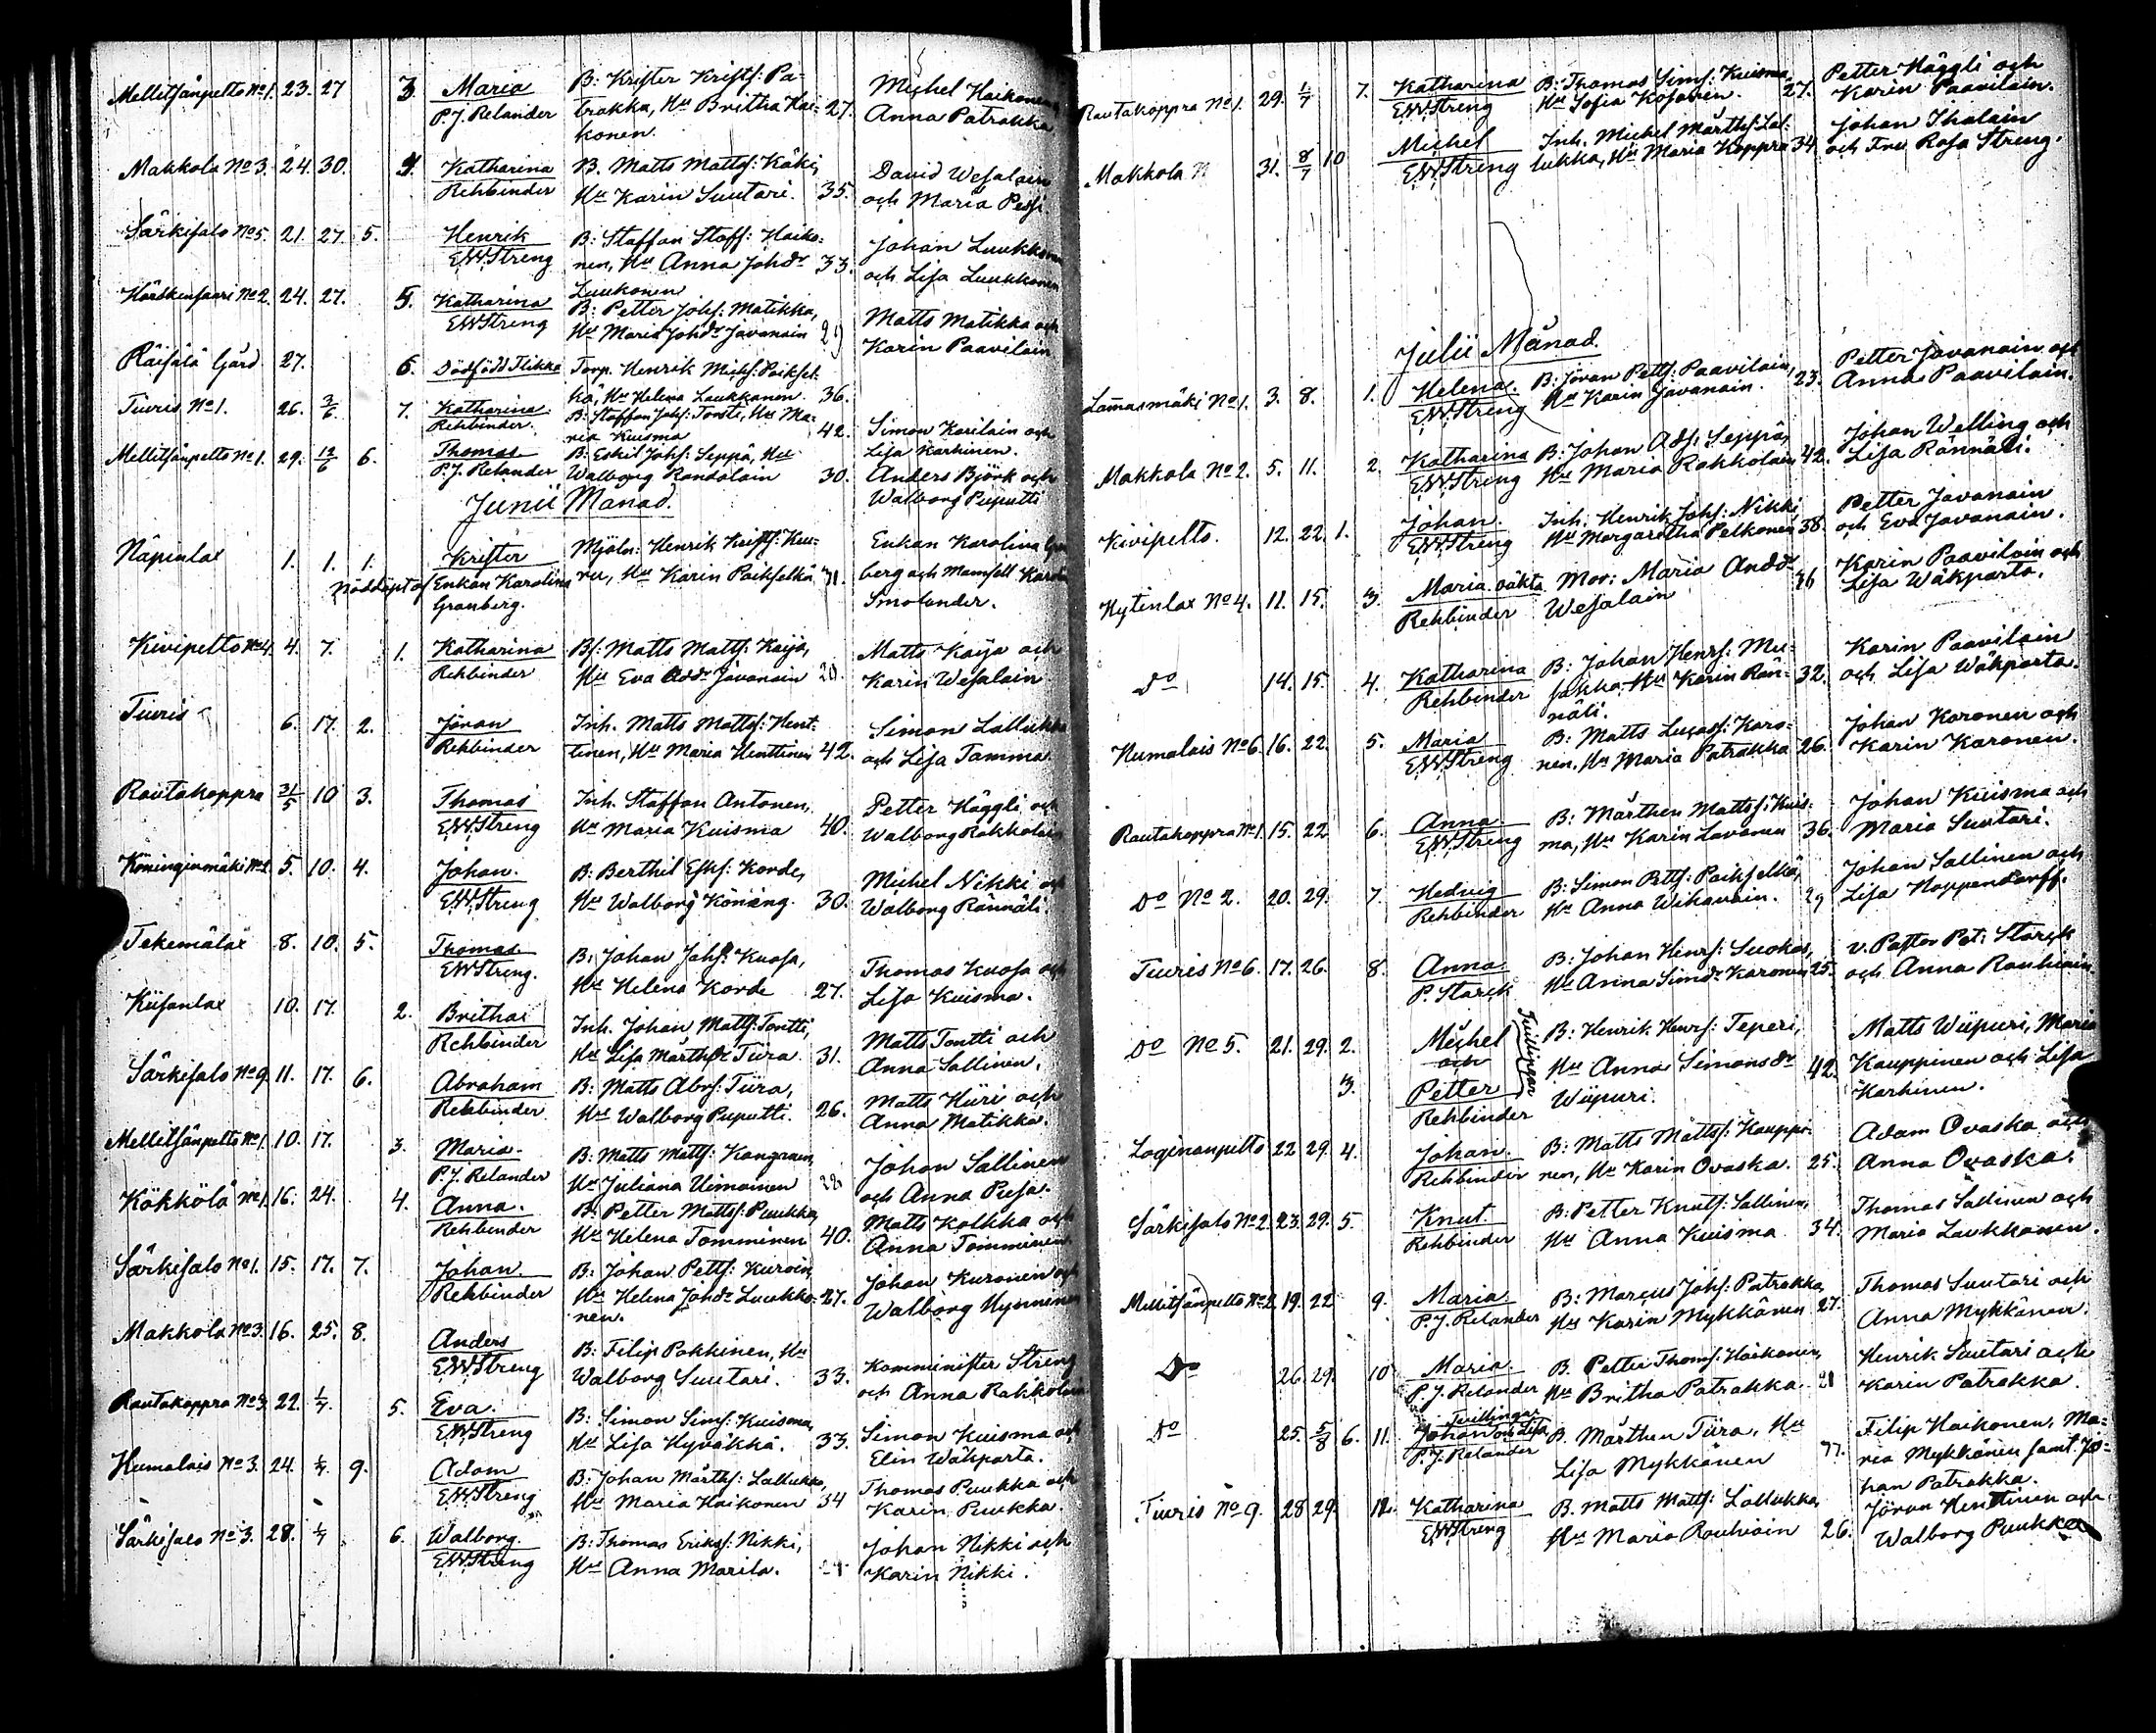 Mellitsänpelto No 1. 23. 27 3. Maria B: Krister Kristf: Pa- Michel Haikonen
P.J. Relander trakka, Hu Britha Hai- 27. Anna Patrakka
konen.
Makkola No 3. 24. 30. 4. Katharina B. Matts Mattsf: Käki, David Wesalain
Rehbinder Hu Karin Suutari. 35. och Maria Pessi.
Särkisalo No 5. 21. 27. 5. Henrik B: Staffan Staff: Haiko- Johan Luukkonen
EWStreng nen, Hu Anna Johdr 33. och Lisa Luukkonen
Luukonen
Härskensaari No 2. 24. 27. 5. Katharina B: Petter Johsf: Matikka, Matts Matikka och
EWStreng Hu Maria Johdr Javanain 29 Karin Paavilain
Räisälä Gård 27. 6. Dödfödd Flicka Torp. Henrik Michsf: Paiksel-
kä, Hu Helena Laukkanen 36.
Tiuris No 1. 26. 2/6 7. Katharina B: Staffan Johsf: Torsti, Hu Ma- Simon Karilain och
Rehbinder. ria Kuisma 42. Lisa Karhinen.
Mellitsänpelto No 1. 29. 12/6 6. Thomas B: Eskil Johsf: Seppä, Hu Anders Björk och
P.J. Relander Walborg Randalain 30. Walborg Puputti
Junii Månad.
Näpinlax 1. 1. 1. Krister Mjöln: Henrik Kristf: Kuu- Enkan Karolina Gran
Nöddöpt af Enkan Karolina ru, Hu Karin Paikselkä 31. berg och Mamsell Karol
Granberg. Smolander.
Kivipelto No 4. 4. 7. 1. Katharina Bf: Matts Mattsf: Kaija, Matts Kaija och
Rehbinder Hu Eva Addr Javanain 20. Karin Wesalain
Tiuris 6. 17. 2. Jöran Inh. Matts Mattsf: Hent- Simon Lallukka
Rehbinder tinen, Hu Maria Henttinen 42. och Lisa Tamma.
Rautakoppra 31/5 10 3. Thomas Inh. Staffan Antonen, Petter Häggli och
EWStreng Hu Maria Kuisma 40. Walborg Rokkolain
Köninginmäki No 2. 5. 10. 4. Johan. B: Berthil Eskf: Korde, Michel Nikki och
EWStreng Hu Walborg Könöng. 30. Walborg Rännäli.
Tekemälax 8. 10. 5. Thomas B: Johan Johsf: Kuosa, Thomas Kuosa och
EWStreng. Hu Helena Korde 27. Lisa Kuisma.
Kiisanlax 10. 17. 2. Britha Inh. Johan Mattsf: Tontti, Matts Tontti och
Rehbinder Hu Lisa Märthdr Tiira 31. Anna Sallinen.
Särkisalo No 9. 11. 17. 6. Abraham B: Matts Abrf: Tiira, Matts Hiiri och
Rehbinder. Hu Walborg Puputti. 26. Anna Matikka.
Mellitsänpelto No 1. 10. 17. 3. Maria. B: Matts Mattsf: Kangrain, Johan Sallinen
P.J. Relander Hu Juliana Uimoinen 28 och Anna Pusa.
Kökkölä No 1. 16. 24. 4. Anna. B: Petter Mattsf: Puukka, Matts Kolkka och
Rehbinder Hu Helena Tomminen 40. Anna Tomminen.
Särkisalo No 1. 15. 17. 7. Johan. B: Johan Pettsf: Kuroin, Johan Kuronen och
Rehbinder Hu Helena Johdr Luukko- 27. Walborg Hynninen
nen.
Makkola No 3. 16. 25. 8. Anders B: Filip Pokkinen, Hu Komminister Streng
EWStreng Walborg Suutari. 33. och Anna Rokkolain
Rautakoppra No 3. 22. 1/7. 5. Eva. B: Simon Simf: Kuisma, Simon Kuisma och
EWStreng Hu Lisa Hyväkkä. 33. Elin Wäkparta.
Humalais No 3. 24. 1/7. 9. Adam B: Johan Märthf: Lallukka, Thomas Puukka och
EWStreng Hu Maria Haikonen 34 Karin Puukka.
Särkisalo No 3. 28. 1/7 6. Walborg. B: Thomas Eriksf: Nikki, Johan Nikki och
EWStreng Hu Anna Marila. Karin Nikki.
Rautakoppra No 1. 29. 1/7 7. Katharina B: Thomas Simf: Kuisma, Petter Häggli och
EWStreng Hu Sofia Kosonen. 27. Karin Paavilain.
Makkola N 31. 8/7 10 Michel Inh. Michel Märthsf: Lal- Johan Ihalain
EWStreng lukka, Hu Maria Koppra 34. och Fru Rosa Streng.
Julii Månad.
Lamasmäki No 1. 3. 8. 1. Helena. B: Jöran Pettsf: Paavilain, Petter Javanain och
EWStreng Hu Karin Javanain. 23. Anna Paavilain.
Makkola No 2. 5. 11. 2. Katharina B: Johan Adf: Seppä, Johan Welling och
EWStreng Hu Maria Rokkolain 42. Lisa Rännäli.
Kivipelto. 12. 22. 1. Johan. Inh. Henrik Johsf: Nikki Petter Javanain
EWStreng Hu Margaretha Pelkonen 38. och Eva Javanain.
Kytinlax No 4. 11. 15. 3. Maria oäkta Mor: Maria Anddr Karin Paavilain och
Rehbinder Wesalain 36 Lisa Wäkparta.
Do 14. 15. 4. Katharina B: Johan Henrf: Mu- Karin Paavilain
Rehbinder sakka Hu Karin Rän- 32. och Lisa Wäkparta.
näli.
Humalais No 6. 16. 22. 5. Maria B: Matts Lucasf: Karo- Johan Karonen och
EWStreng nen, Hu Maria Patrakka 26. Karin Karonen.
Rautakoppra No 1. 15. 22 6. Anna. B: Mårthen Mattsf: Kuis- Johan Kuisma och
EWStreng ma, Hu Karin Lavonen 36. Maria Suutari.
Do No 2. 20. 29. 7. Hedvig B: Simon Pettsf: Paikselkä, Johan Sallinen och
Rehbinder Hu Anna Wihavain. 29 Lisa Hoppendorff.
Tiuris No 6. 17. 26. 8. Anna B: Johan Henrf: Suokas, v. Pastor Pet: Starck
P. Starck Hu Anna Simdr Karonen 25. och Anna Rauhiain
Do No 5. 21. 29. 2. Michel B: Henrik Henrf: Teperi, Matts Wiipuri, Maria
och Tvillingar Hu Anna Simonsdr 42. Kauppinen och Lisa
3. Petter Wiipuri. Karhinen.
Rehbinder
Loginanpelto 22 29. 4. Johan. B: Matts Mattsf: Kauppi- Adam Ovaska och
Rehbinder nen, Hu Karin Ovaska. 25. Anna Ovaska.
Särkisalo No 2. 23. 29. 5. Knut. B: Petter Knutsf: Sallinen, Thomas Sallinen och
Rehbinder Hu Anna Kuisma 34. Maria Laukkanen.
Mellitsänpelto No 2 19. 22 9. Maria B: Marcus Johsf: Patrakka, Thomas Suutari och
P.J. Relander Hu Karin Mykkänen 27. Anna Mykkänen.
Do 26. 29. 10 Maria B. Petter Thomsf: Haikonen, Henrik Suutari och
P.J. Relander Hu Britha Patrakka. 21 Karin Patrakka.
Tvillingar
Do 25. 5/8 6. 11. Johan och Lisa B. Mårthen Tiira, Hu Filip Haikonen, Ma-
P.J. Relander Lisa Mykkänen ria Mykkänen samt Jo-
han Patrakka.
Tiuris No 9. 28 29. 12. Katharina B. Matts Mattsf: Lallukka, Jöran Henttinen och
EWStreng Hu Maria Rauhiain 26. Walborg Puukka